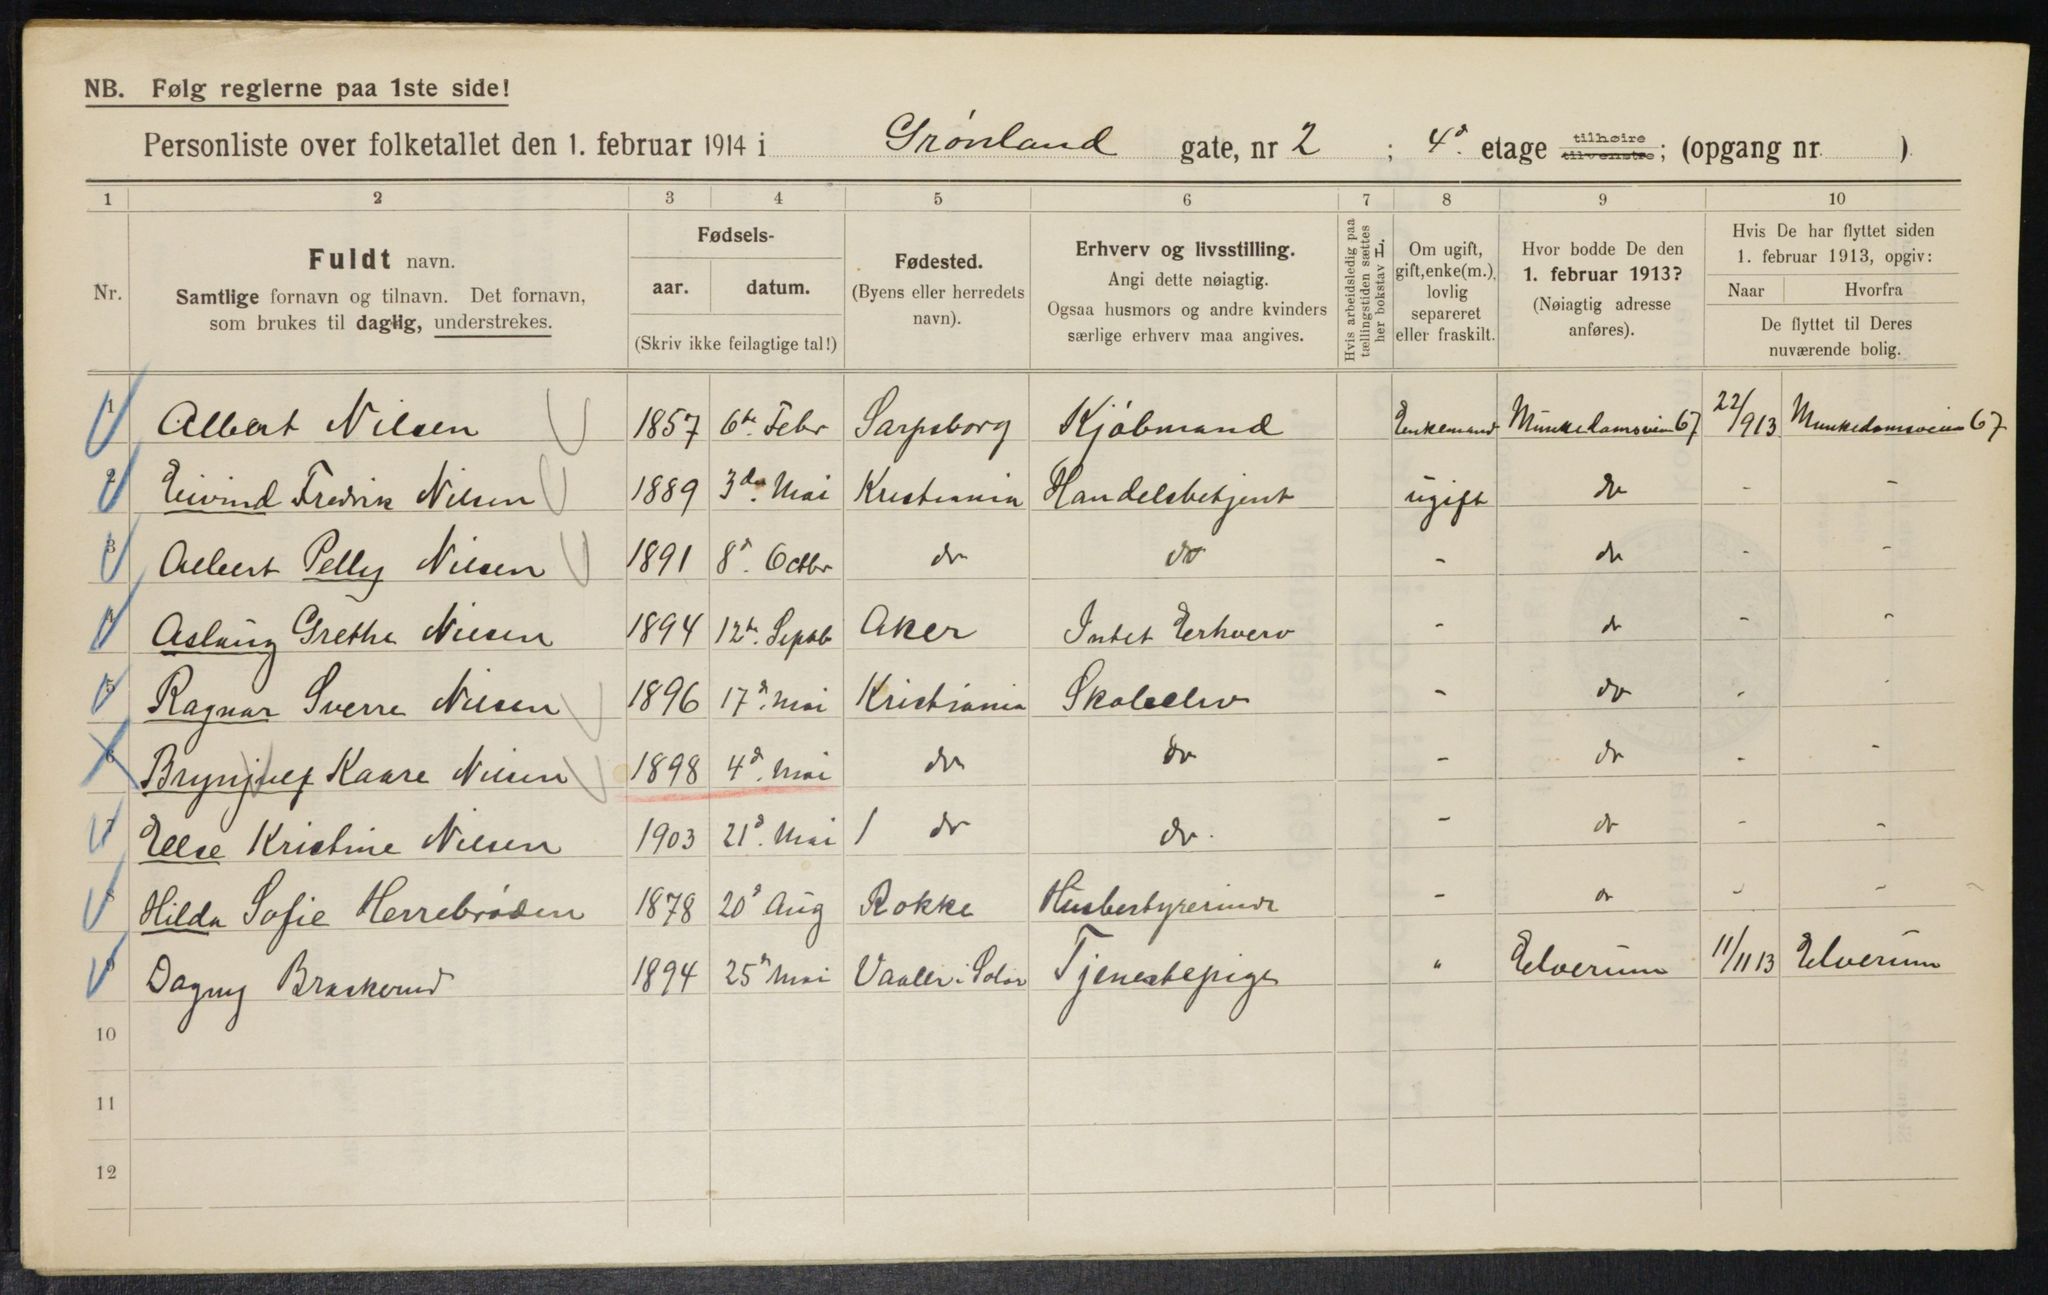 NB. Følg reglerne paa 1ste side!
Personliste over folketallet den 1. februar 1914 i Grønland gate, nr 2 ; 4d. etage tilhøire tilvenstre; (opgang nr )
1 2 3 4 5 6 7 8 9 10
Nr.
Fuldt navn.
Samtlige fornavn og tilnavn. Det fornavn,
som brukes til daglig, understrekes.
Fødsels-
aar. datum.
(Skriv ikke feilagtige tal!)
Fødested.
(Byens eller herredets
navn).
Erhverv og livsstilling.
Angi dette nøiagtig.
Ogsaa husmors og andre kvinders
særlige erhverv maa angives.
Hvis arbeidsledig paa
tællingstiden sættes
her bokstav L.
Om ugift,
gift, enke(m.),
lovlig
separeret
eller fraskilt.
Hvor bodde De den
1. februar 1913?
(Nøiagtig adresse
anføres).
Hvis De har flyttet siden
1. februar 1913, opgiv:
Naar Hvorfra
De flyttet til Deres
nuværende bolig.
1 Albert Nilsen 1857 6te. Febr Sarpsborg Kjøbmand Enkemand Munkedamsveien 67 22/913 Munkedamsveien 67
2 Eivind Fredrik Nilsen 1889 3de. Mai Kristiania Handelsbetjent ugift do - -
3 Albert Pelly Nilsen 1891 8d. Octbr do do - do - -
4 Aslaug Grethe Nilsen 1894 12te. Septb Aker Intet Erhverv - do - -
5 Ragnar Sverre Nilsen 1896 17d. Mai Kristiania Skoleelev - do - -
6 Brynjulf Kaare Nilsen 1898 4d. Mai do do - do - -
7 Else Kristine Nilsen 1903 21d. Mai 1 do do. - do - -
8 Hilda Sofie Herrebrøden 1878 20d Aug Rokke Husbestyrerinde - do - -
9 Dagny Braskerud 1894 25d Mai Vaaler i Solør Tjenestepige " Elverum 11/11 13 Elverum
10
11
12